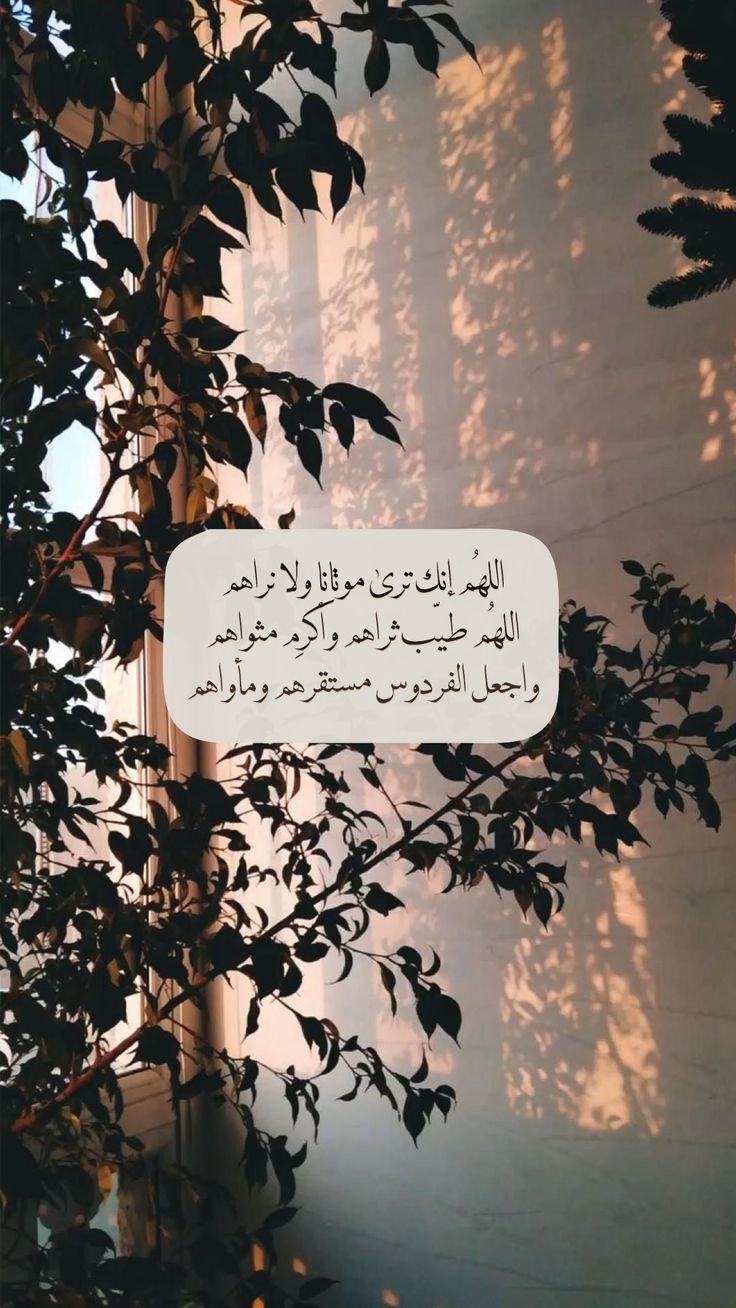 اللهُم إنك ترىٰ موتانا ولا نراهم
اللهُم طيّب ثراهم وأكرِم مثواهم
واجعل الفردوس مستقرهم ومأواهم